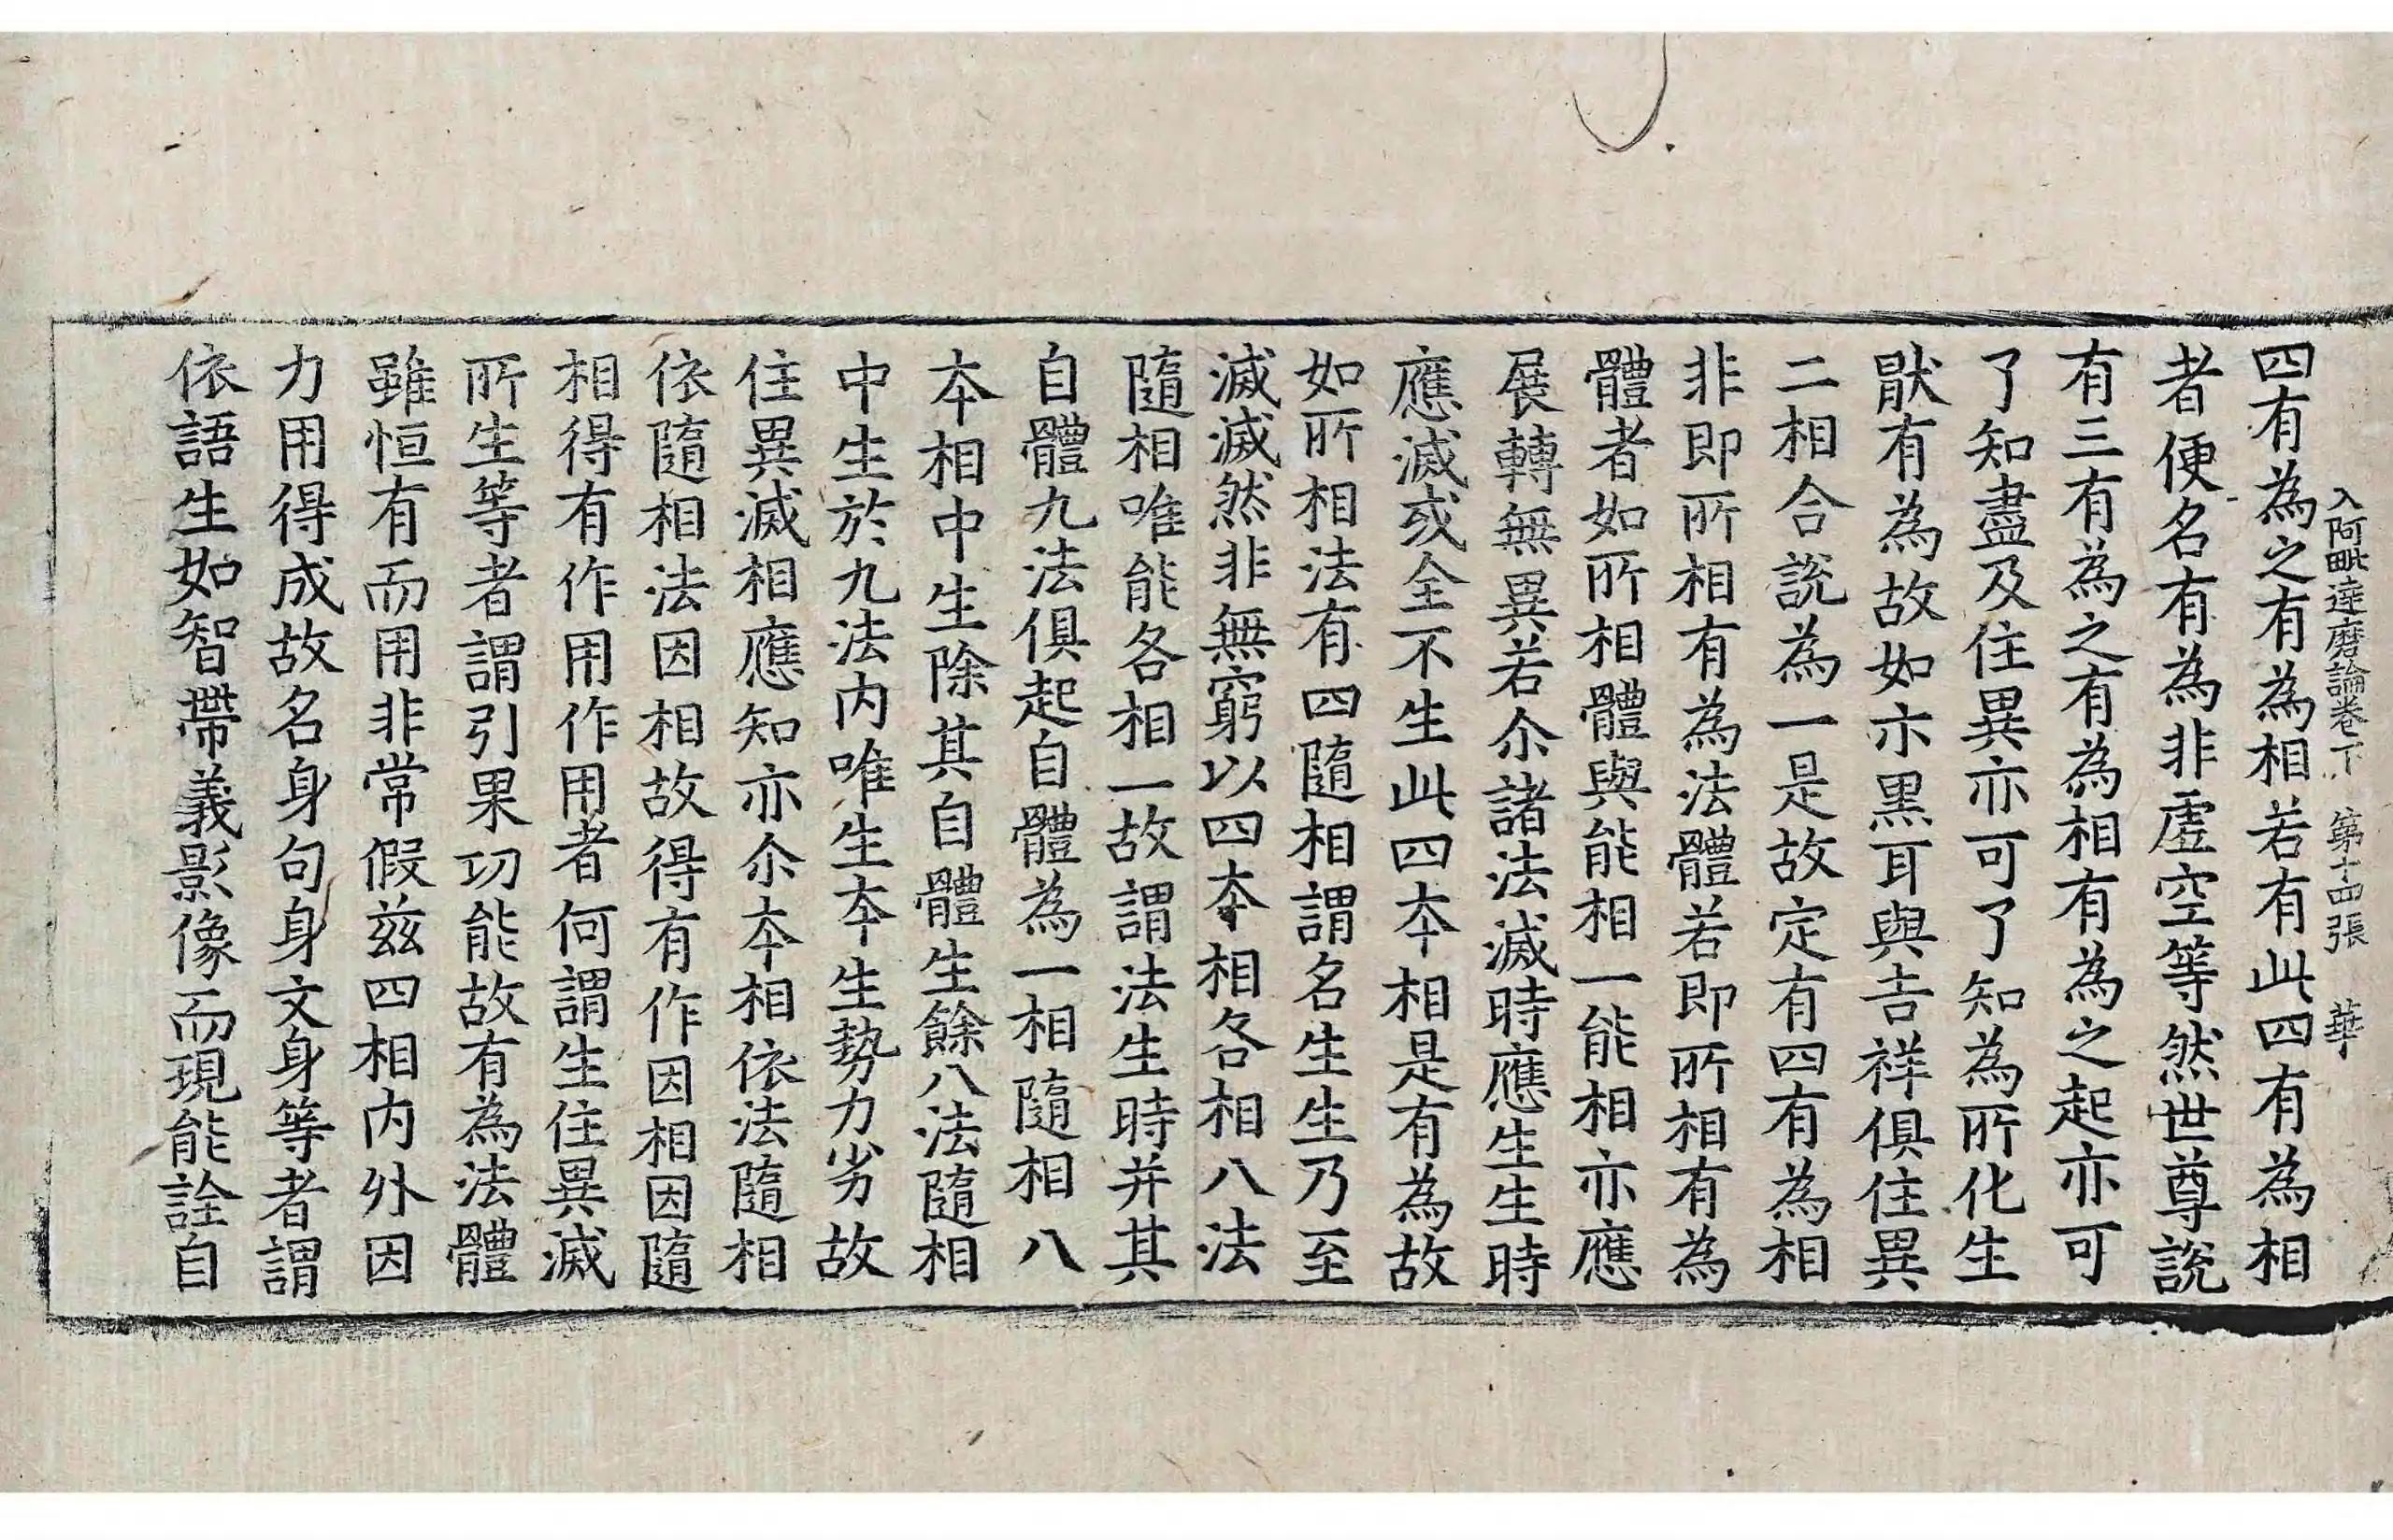 入阿毗達磨論卷下 第十四張 華
四有為之有為相若有此四有為相
者便名有為非虛空等然世尊說
有三有為之有為相有為之起亦可
了知盡及住異亦可了知為所化生
猒有為故如示黑耳與吉祥俱住異
二相合說為一是故定有四有為相
非即所相有為法體若即所相有為
體者如所相體與能相一能相亦應
展轉無異若尒諸法滅時應生生時
應滅或全不生此四本相是有為故
如所相法有四隨相謂名生生乃至
滅滅然非無窮以四本相各相八法
隨相唯能各相一故謂法生時并其
自體九法俱起自體為一相隨相八
本相中生除其自體生餘八法隨相
中生於九法內唯生本生勢力劣故
住異滅相應知亦尒本相依法隨相
依隨相法因相故得有作因相因隨
相得有作用作用者何謂生住異滅
所生等者謂引果功能故有為法體
雖恒有而用非常假茲四相內外因
力用得成故名身句身文身等者謂
依語生如智帶義影像而現能詮自